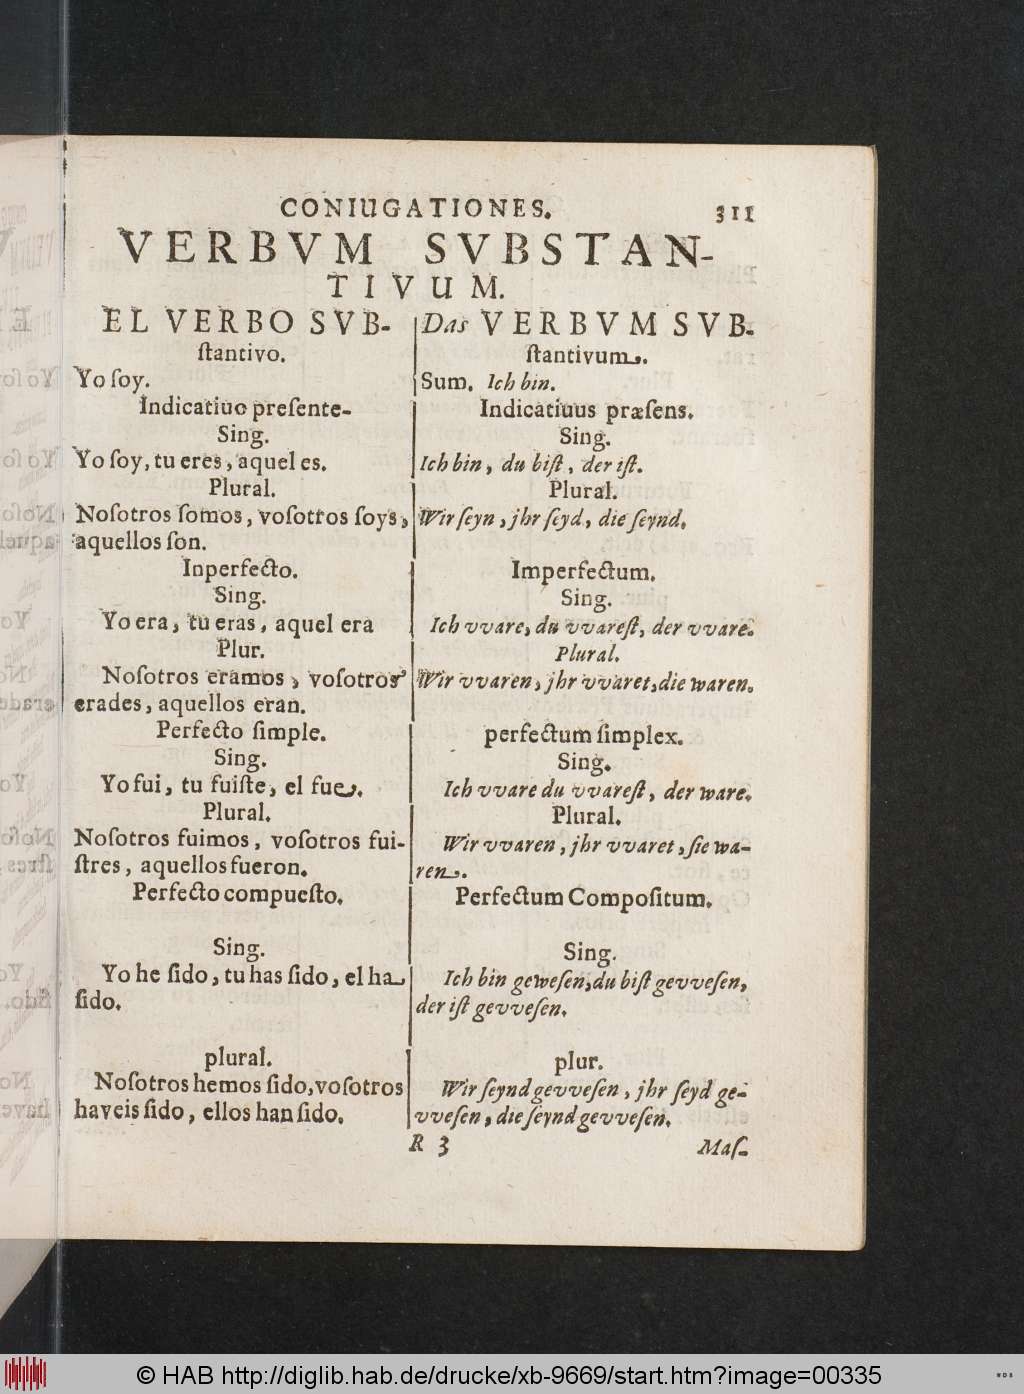 CONIUGATIONES. 311
VERBVM SVBSTAN-
TIVUM.
EL VERBO SVB-
ſtantivo.
Yo ſoy.
Indicatiuo preſente-
Sing.
Yo ſoy, tu eres, aquel es.
Plural.
Noſotros ſomos, voſotros ſoys,
aquellos ſon.
Inperfecto.
Sing.
Yo era, tu eras, aquel era
Plur.
Noſotros eramos, voſotros
erades, aquellos eran.
Perfecto ſimple.
Sing.
Yo fui, tu fuiſte, el fue.
Plural.
Noſotros fuimos, voſotros fui-
ſtres, aquellos fueron.
Perfecto compueſto.
Sing.
Yo he ſido, tu has ſido, el ha
ſido.
plural.
Noſotros hemos ſido, voſotros
haveis ſido, ellos han ſido.
Das VERBVM SVB-
ſtantivum.
Sum. Ich bin.
Indicatiuus præſens.
Sing.
Ich bin, du biſt, der iſt.
Plural.
Wir ſeyn, jhr ſeyd, die ſeynd.
Imperfectum.
Sing.
Ich vvare, du vvareſt, der vvare.
Plural.
Wir vvaren, jhr vvaret, die waren.
perfectum ſimplex.
Sing.
Ich vvare du vvareſt, der ware.
Plural.
Wir vvaren, jhr vvaret, ſie wa-
ren.
Perfectum Compoſitum.
Sing.
Ich bin geweſen, du biſt gevveſen,
der iſt gevveſen.
plur.
Wir ſeynd gevveſen, jhr ſeyd ge-
vveſen, die ſeynd gevveſen.
R 3 Maſ-
© HAB http://diglib.hab.de/drucke/xb-9669/start.htm?image=00335